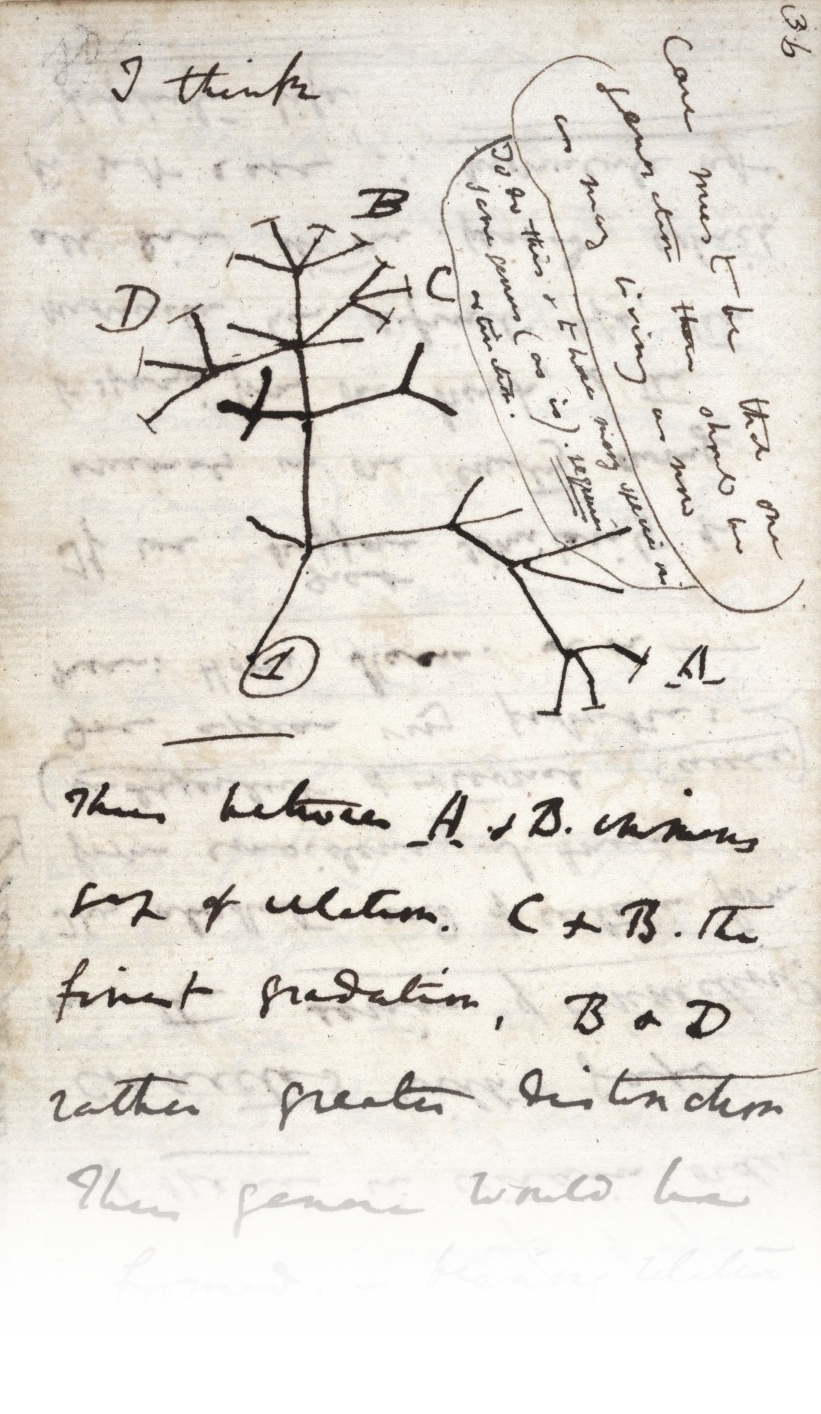 36
I think
B
D
C
A
1
Case must be that one
generation then should be
as many living as now
To do this & to have many species in
same genus (as is). requires
extinction.
Thus between A & B. immense
gap of relation. C & B. The
finest gradation, B & D
rather greater distinction
Thus genera would be
formed. — bearing relation